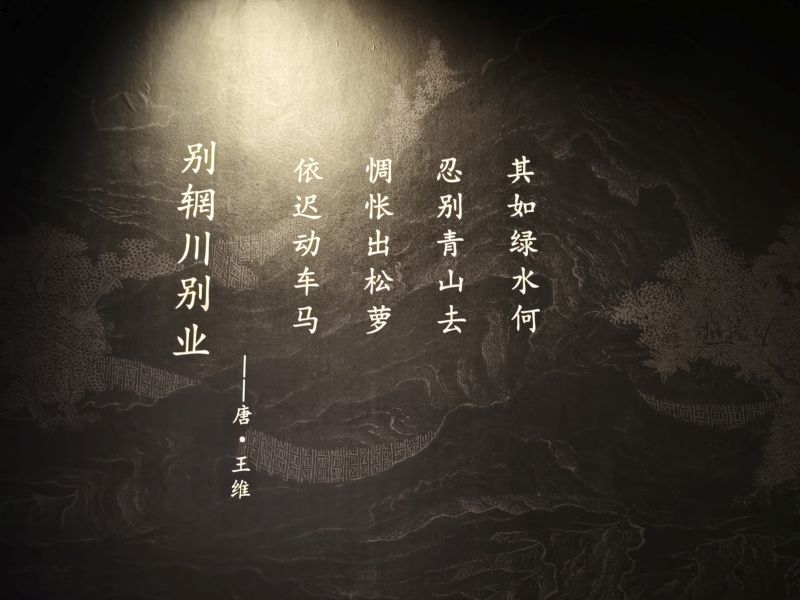 别辋川别业
——唐·王维
依迟动车马
惆怅出松萝
忍别青山去
其如绿水何